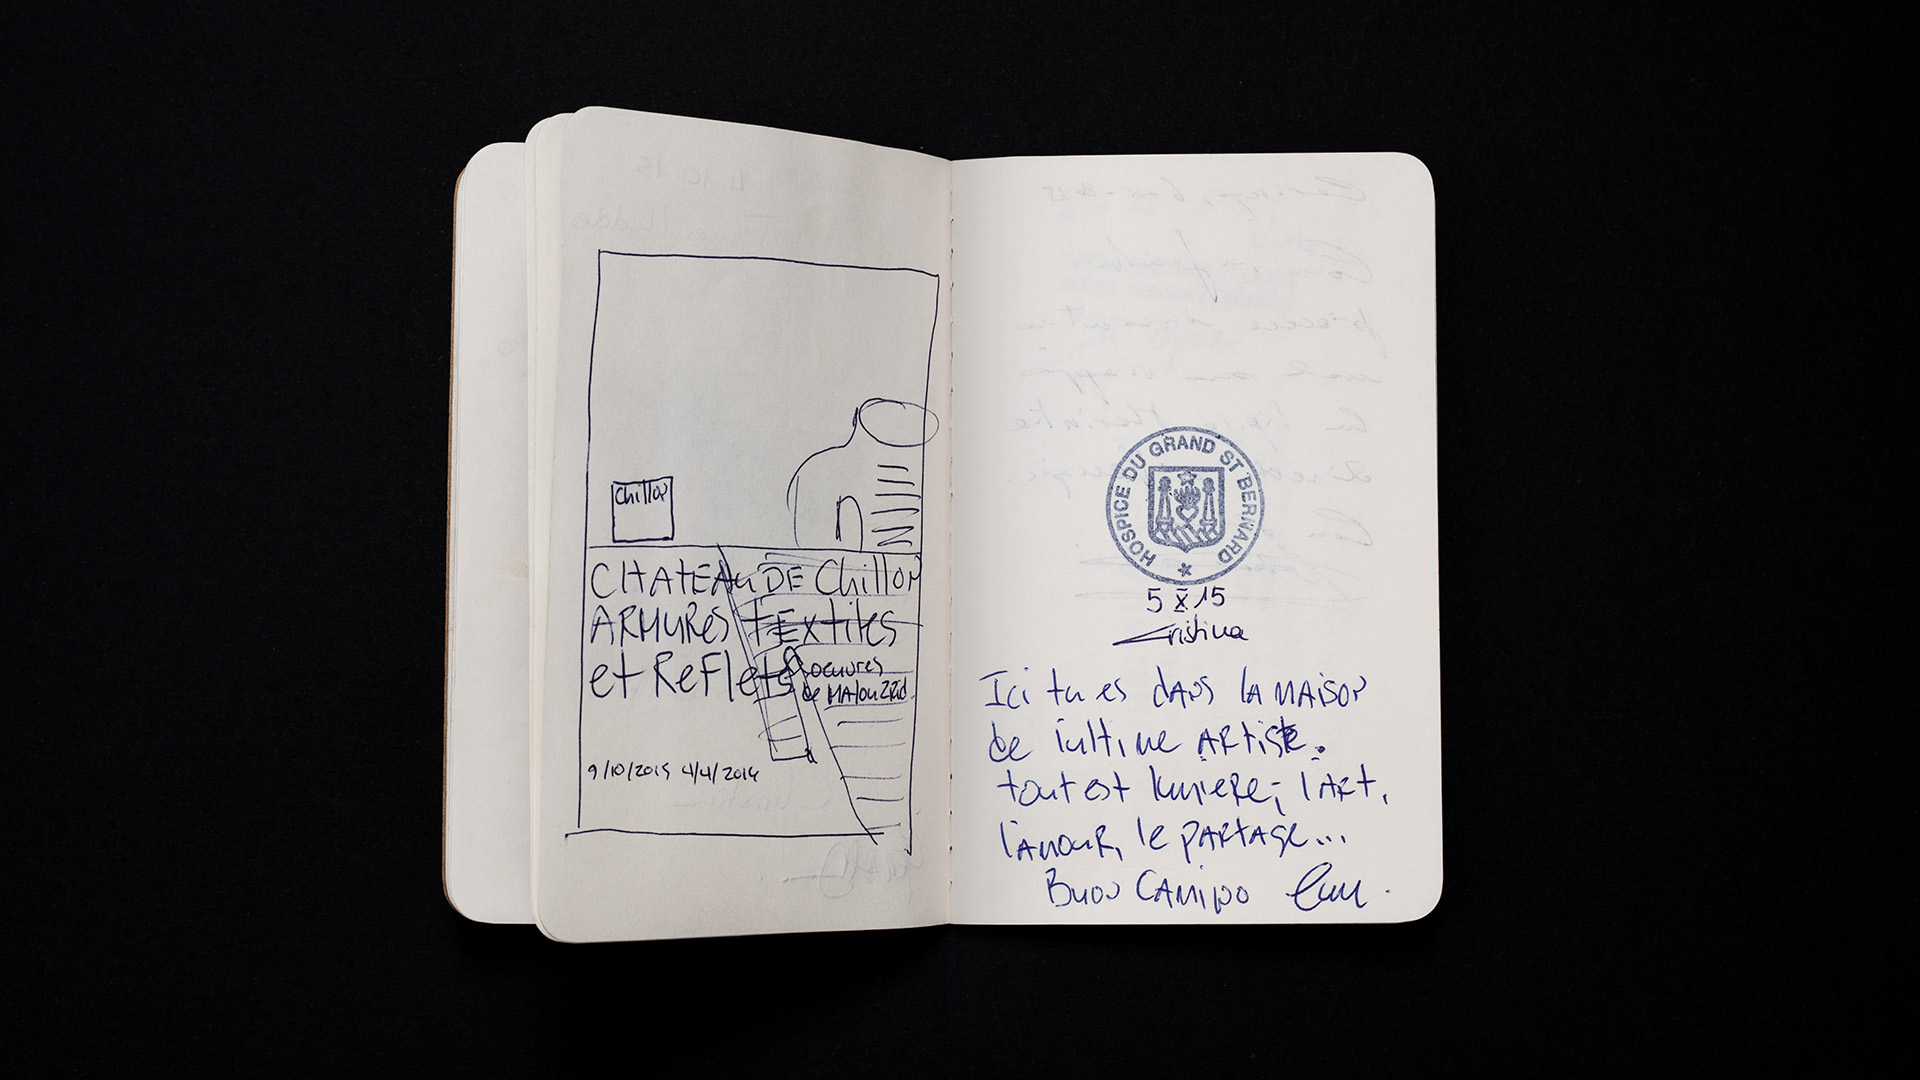 Chillon
CHATEAU DE Chillon
ARMURES tExtiles
et ReFlets oeuvres
de MAlou ZRid
9/10/2015 4/4/2016
HOSPICE DU GRAND ST BERNARD
5 X 15
Cristina
Ici tu es dANS lA MAISON
de l'ultime ARtiste.
tout est lumieRe; l'ARt,
l'AmouR, le pARtAge...
BuoN CAMiNo